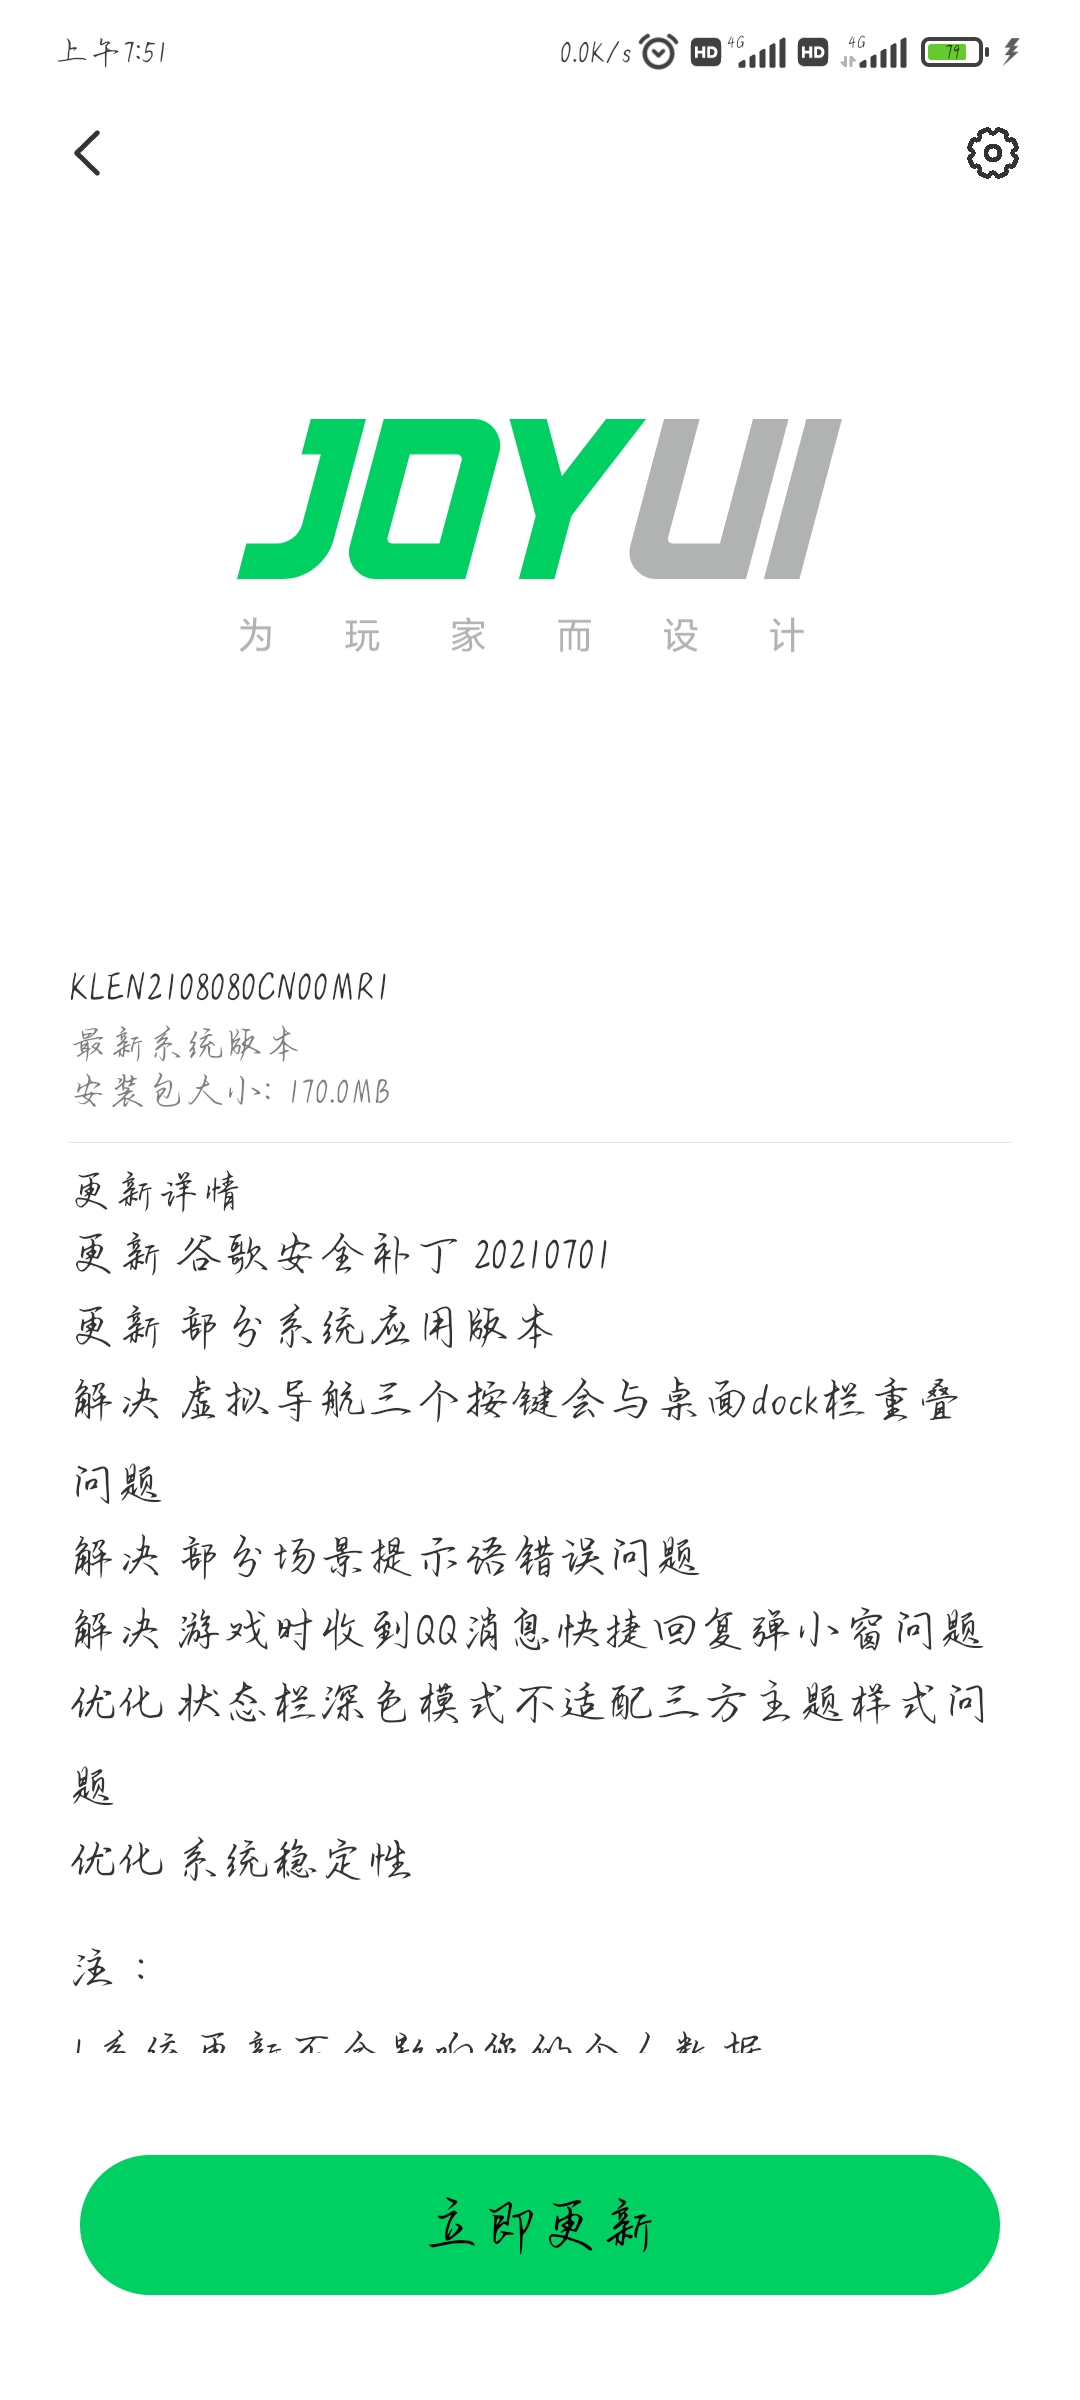 上午7:51
0.0K/s HD 4G HD 4G 79
JOYUI
为玩家而设计
KLEN2108080CN00MR1
最新系统版本
安装包大小: 170.0MB
更新详情
更新 谷歌安全补丁 20210701
更新 部分系统应用版本
解决 虚拟导航三个按键会与桌面dock栏重叠
问题
解决 部分场景提示语错误问题
解决 游戏时收到QQ消息快捷回复弹小窗问题
优化 状态栏深色模式不适配三方主题样式问
题
优化 系统稳定性
注：
1.系统更新不会影响您的个人数据
立即更新